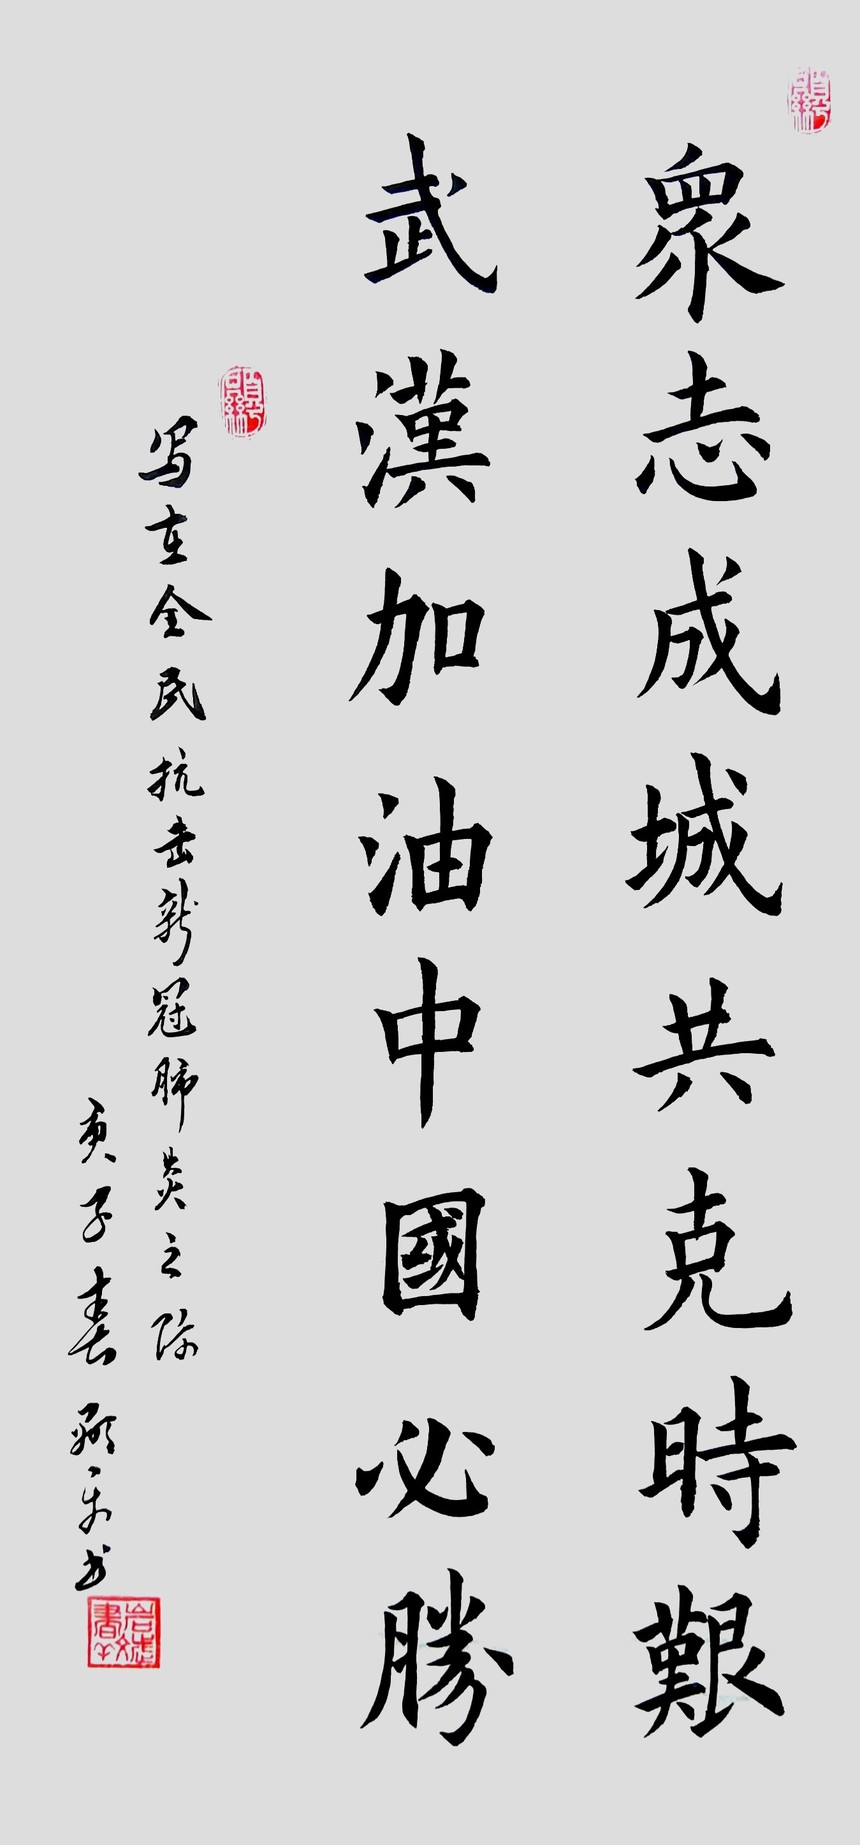 眾志成城共克時艱
武漢加油中國必勝
写在全民抗击新冠肺炎之际
庚子春
书